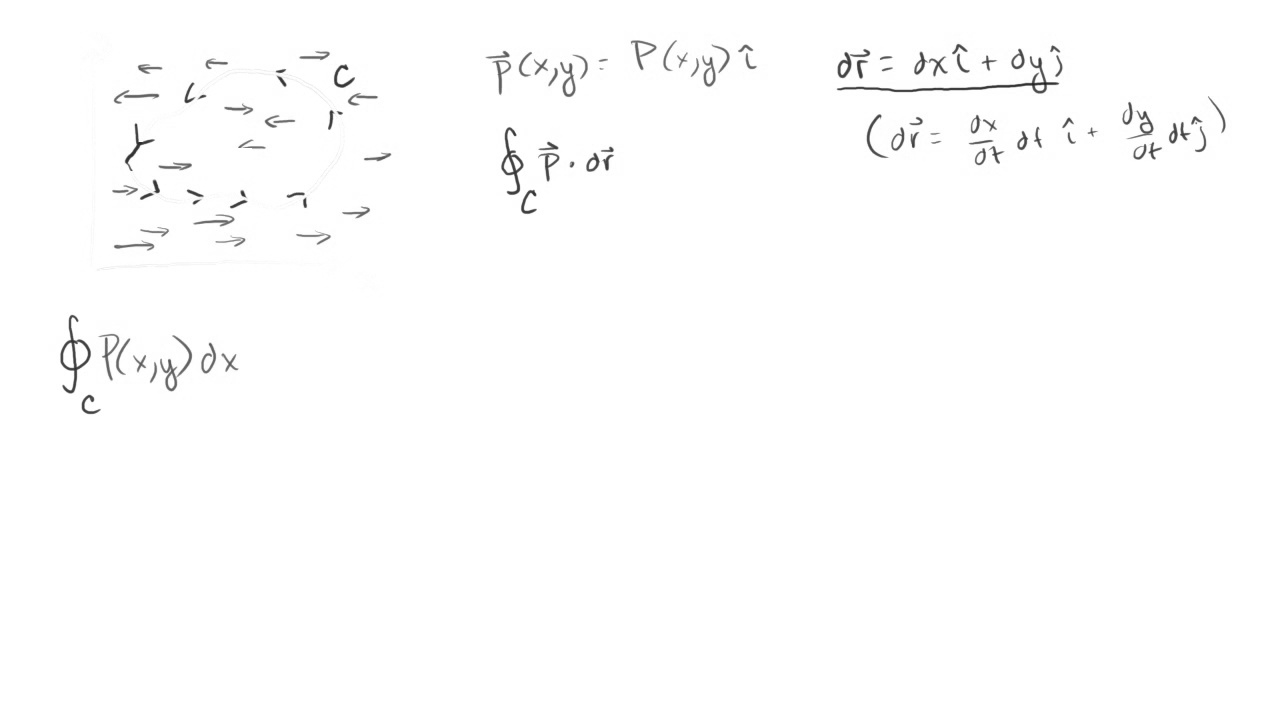 C
p⃗(x,y) = P(x,y) î
∮_C p⃗ · dr⃗
dr⃗ = dx î + dy ĵ
(dr⃗ = dx/dt dt î + dy/dt dt ĵ)
∮_C P(x,y) dx